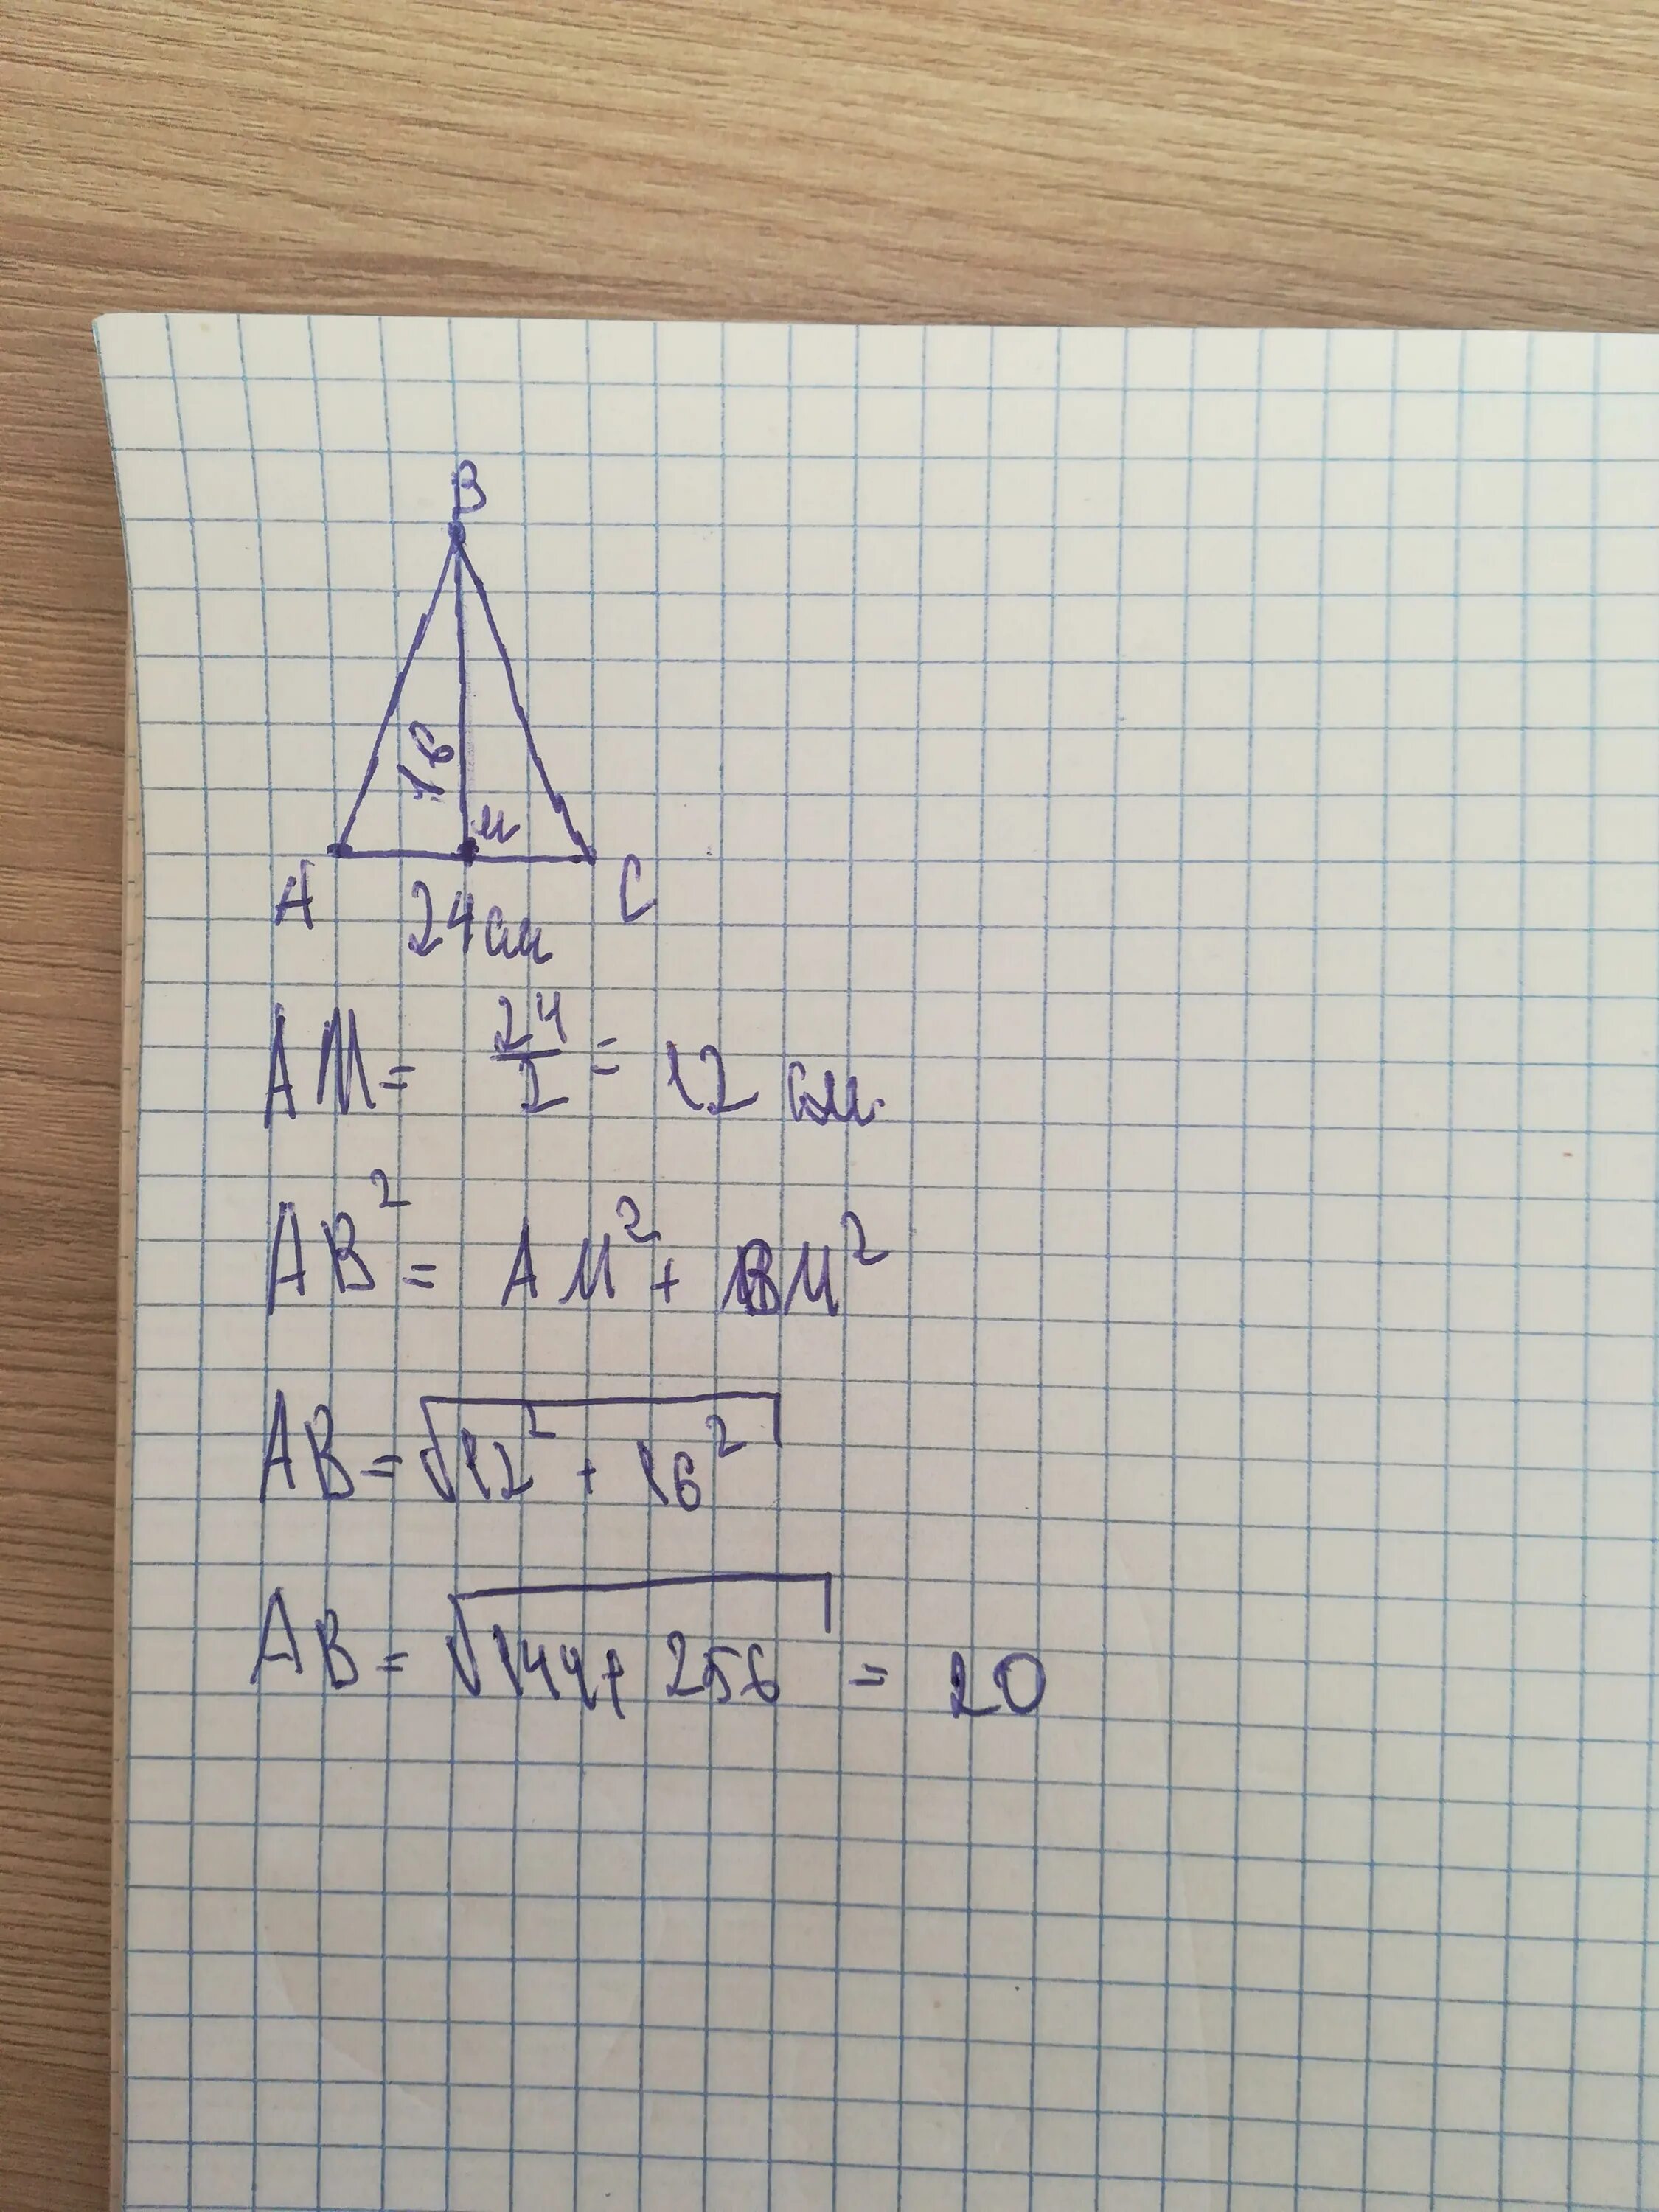 B
16
м
A C
24 см
AM = 24/2 = 12 см.
AB² = AM² + BM²
AB = √12² + 16²
AB = √144 + 256 = 20